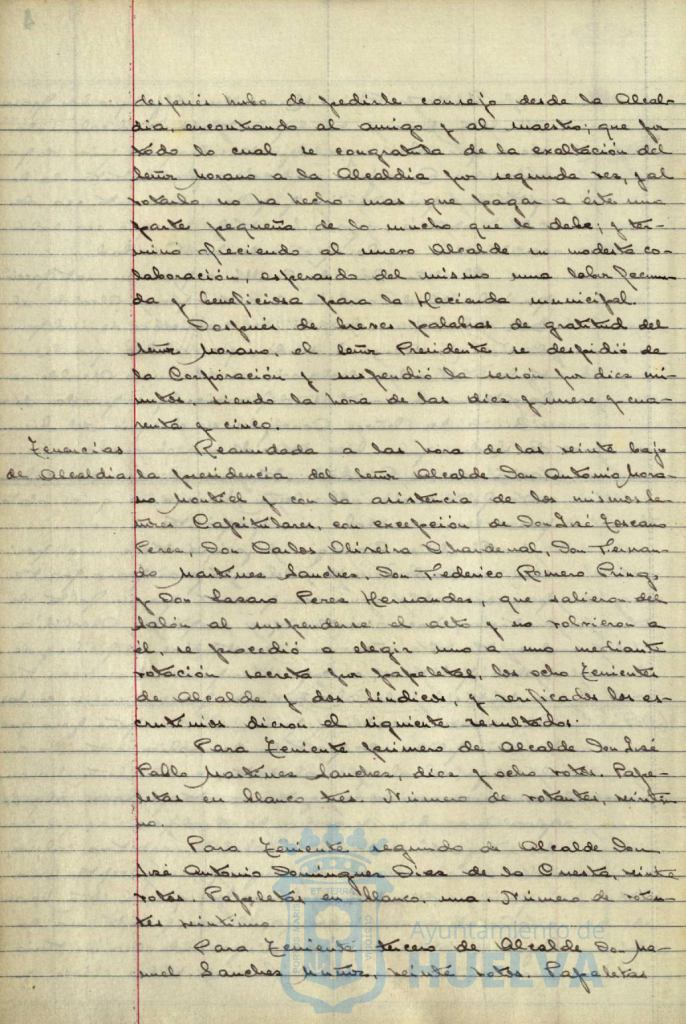 después hubo de pedirle consejo desde la Alcal-
día, encontrando al amigo y al maestro; que por
todo lo cual se congratula de la exaltación del
Señor Morano a la Alcaldía por segunda vez, y al
votarlo no ha hecho mas que pagar a éste una
parte pequeña de lo mucho que le debe; y ter-
minó ofreciendo al nuevo Alcalde su modesta co-
laboración, esperando del mismo una labor fecun-
da y beneficiosa para la Hacienda municipal.
Después de breves palabras de gratitud del
Señor Morano, el Señor Presidente se despidió de
la Corporación y suspendió la sesión por diez mi-
nutos, siendo la hora de las diez y nueve y cua-
renta y cinco.
Tenencias
de Alcaldia
Reanudada a las hora de las veinte bajo
la presidencia del Señor Alcalde Don Antonio Mora-
no Montiel y con la asistencia de los mismos Se-
ñores Capitulares, con excepción de Don José Toscano
Perez, Don Carlos Oliveira Chardenal, Don Fernan-
do Martinez Sanchez, Don Federico Romero Pringo
y Don Lazaro Perez Hernandez, que salieron del
Salón al suspenderse el acto y no volvieron a
él, se procedió a elegir uno a uno mediante
votación secreta por papeletas, los ocho Tenientes
de Alcalde y dos Síndicos, y verificados los es-
crutinios dieron el siguiente resultados:
Para Teniente primero de Alcalde Don José
Pablo Martinez Sanchez, diez y ocho votos. Pape-
letas en blanco tres. Número de votantes, veintiu-
no.
Para Teniente segundo de Alcalde Don
José Antonio Dominguez Diaz de la Cuesta, veinte
votos. Papeletas en blanco, una. Número de votan-
tes veintiuno
Para Teniente tercero de Alcalde Don Ma-
nuel Sanchez Muñoz, veinte votos. Papeletas
Ayuntamiento de
HUELVA